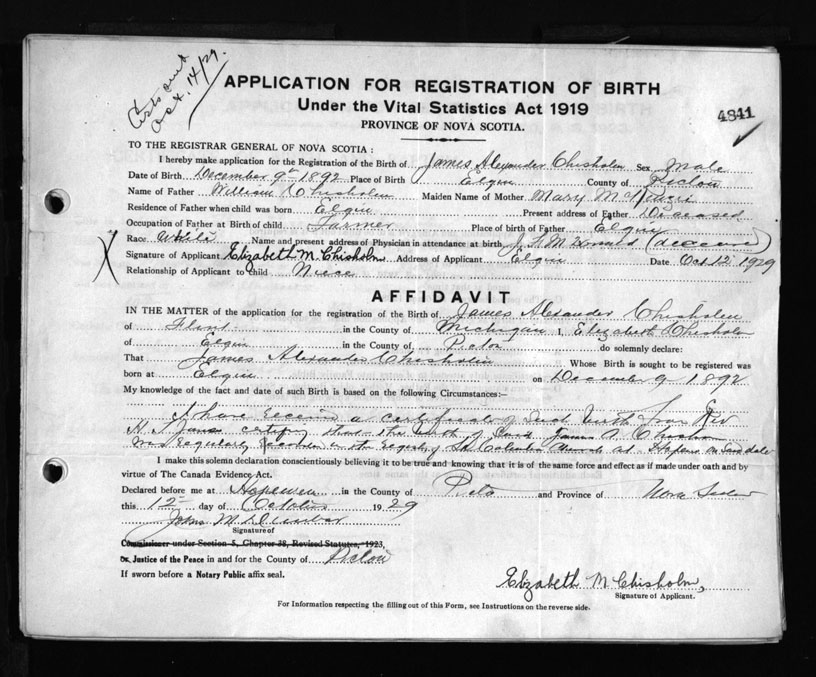 Oct. 14/29.
APPLICATION FOR REGISTRATION OF BIRTH
Under the Vital Statistics Act 1919
4841
PROVINCE OF NOVA SCOTIA.
TO THE REGISTRAR GENERAL OF NOVA SCOTIA :
I hereby make application for the Registration of the Birth of James Alexander Chisholm Sex Male
Date of Birth December 9th 1892 Place of Birth Elgin County of Pictou
Name of Father William Chisholm Maiden Name of Mother Mary
Residence of Father when child was born Elgin Present address of Father Deceased
Occupation of Father at Birth of child Farmer Place of birth of Father Elgin
Race White Name and present address of Physician in attendance at birth
Signature of Applicant Elizabeth M. Chisholm Address of Applicant Elgin Date Oct 12 1929
Relationship of Applicant to Child Niece
AFFIDAVIT
IN THE MATTER of the application for the registration of the Birth of James Alexander Chisholm
of Flint in the County of Michigan I, Elizabeth Chisholm
of Elgin in the County of Pictou do solemnly declare:
That James Alexander Chisholm Whose Birth is sought to be registered was
born at Elgin on December 9 1892
My knowledge of the fact and date of such Birth is based on the following Circumstances:—
I have received a certificate of such birth from Rev
certify that the birth of said James A. Chisholm
was regularly recorded in the registry of St Columba Church at
I make this solemn declaration conscientiously believing it to be true and knowing that it is of the same force and effect as if made under oath and by
virtue of The Canada Evidence Act.
Declared before me at Hopewell in the County of Pictou and Province of Nova Scotia
this 12 day of October 1929
John M. Dunbar
Signature of
Commissioner under Section 5, Chapter 38, Revised Statutes, 1923,
Or, Justice of the Peace in and for the County of Pictou
If sworn before a Notary Public affix seal.
Elizabeth M Chisholm,
Signature of Applicant.
For Information respecting the filling out of this Form, see Instructions on the reverse side.